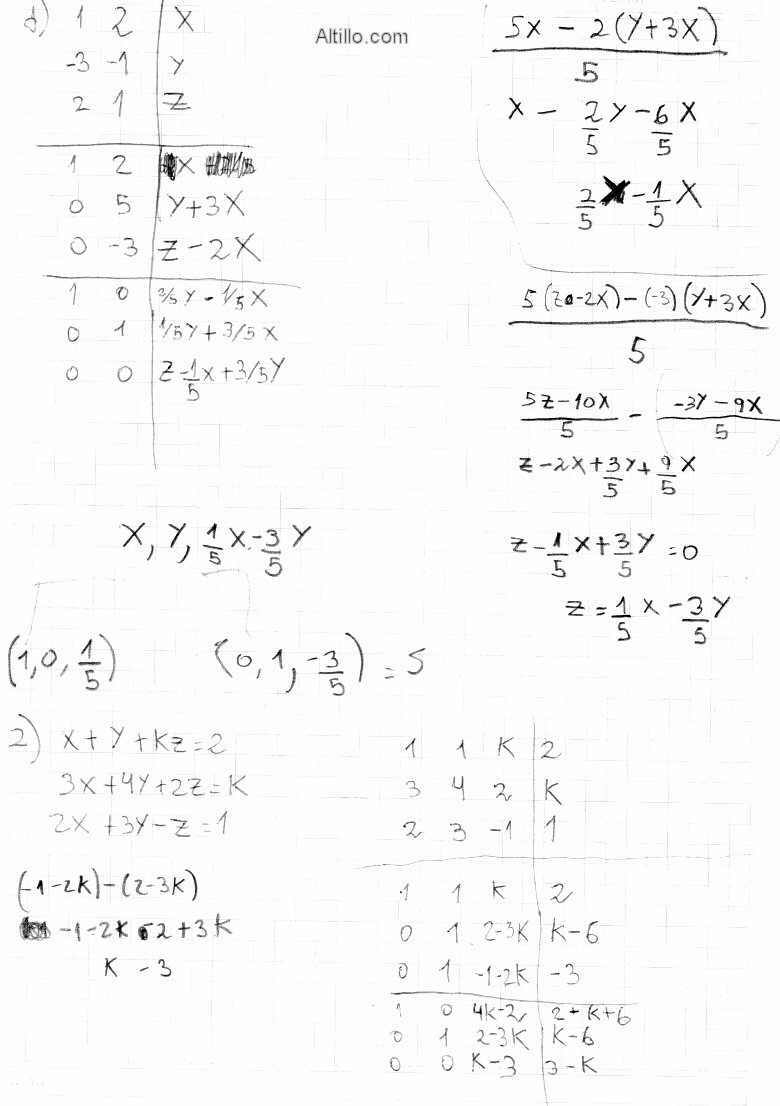 Altillo.com
d) 1 2 | X
-3 -1 | Y
2 1 | Z
1 2 | X
0 5 | Y+3X
0 -3 | Z-2X
1 0 | 2/5 Y - 1/5 X
0 1 | 1/5 Y + 3/5 X
0 0 | Z - 1/5 X + 3/5 Y
(5X - 2(Y+3X))/5
X - 2/5 Y - 6/5 X
2/5 - 1/5 X
(5(Z-2X) - (-3)(Y+3X))/5
(5Z-10X)/5 - (-3Y-9X)/5
Z-2X+3/5 Y+9/5 X
Z - 1/5 X + 3/5 Y = 0
Z = 1/5 X - 3/5 Y
X, Y, 1/5 X - 3/5 Y
(1, 0, 1/5) (0, 1, -3/5) = S
2) X+Y+KZ=2
3X+4Y+2Z=K
2X+3Y-Z=1
(-1-2K)-(2-3K)
-1-2K-2+3K
K -3
1 1 K | 2
3 4 2 | K
2 3 -1 | 1
1 1 K | 2
0 1 2-3K | K-6
0 1 -1-2K | -3
1 0 4K-2 | 2+K+6
0 1 2-3K | K-6
0 0 K-3 | 3-K